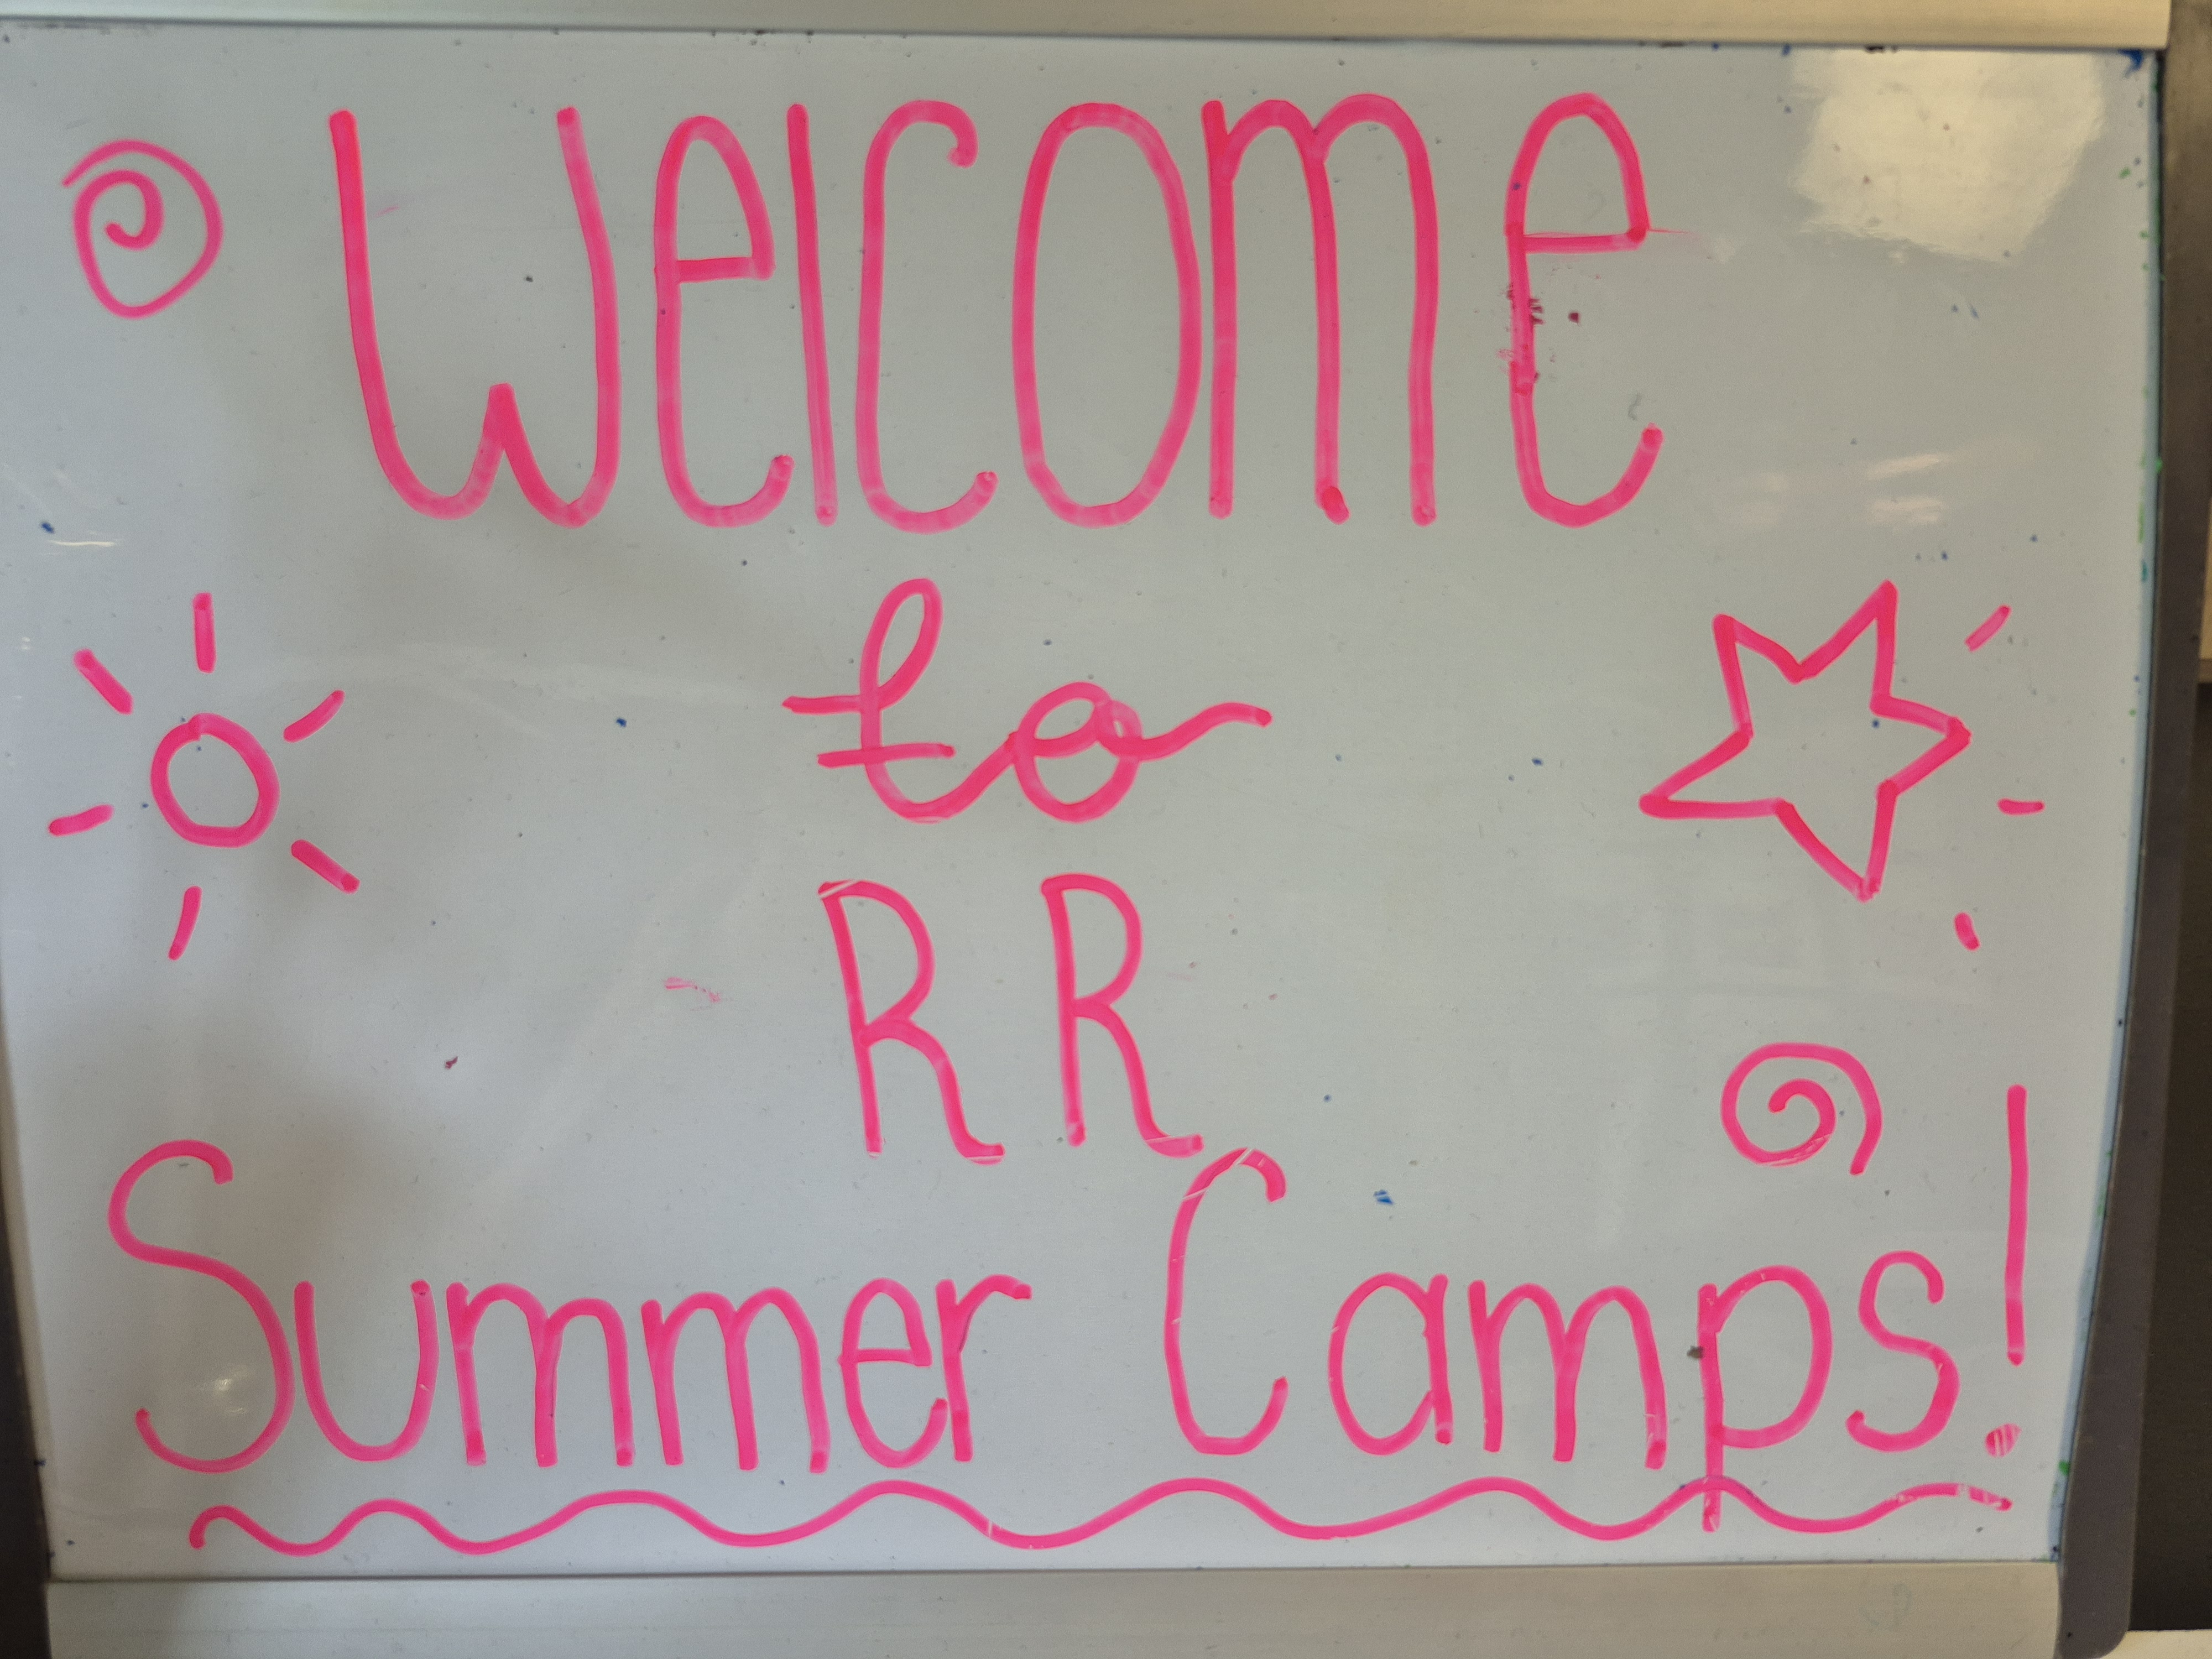 Welcome
to
RR
Summer Camps!